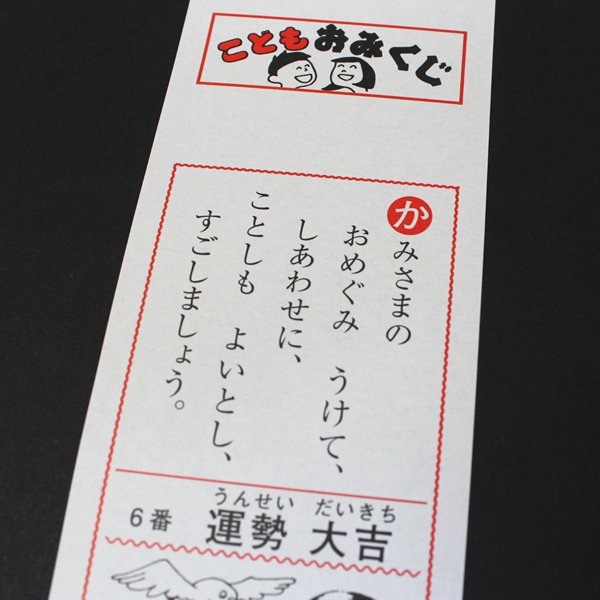 こどもおみくじ
かみさまの
おめぐみ うけて、
しあわせに、
ことしも よいとし、
すごしましょう。
うんせい だいきち
6番 運勢 大吉